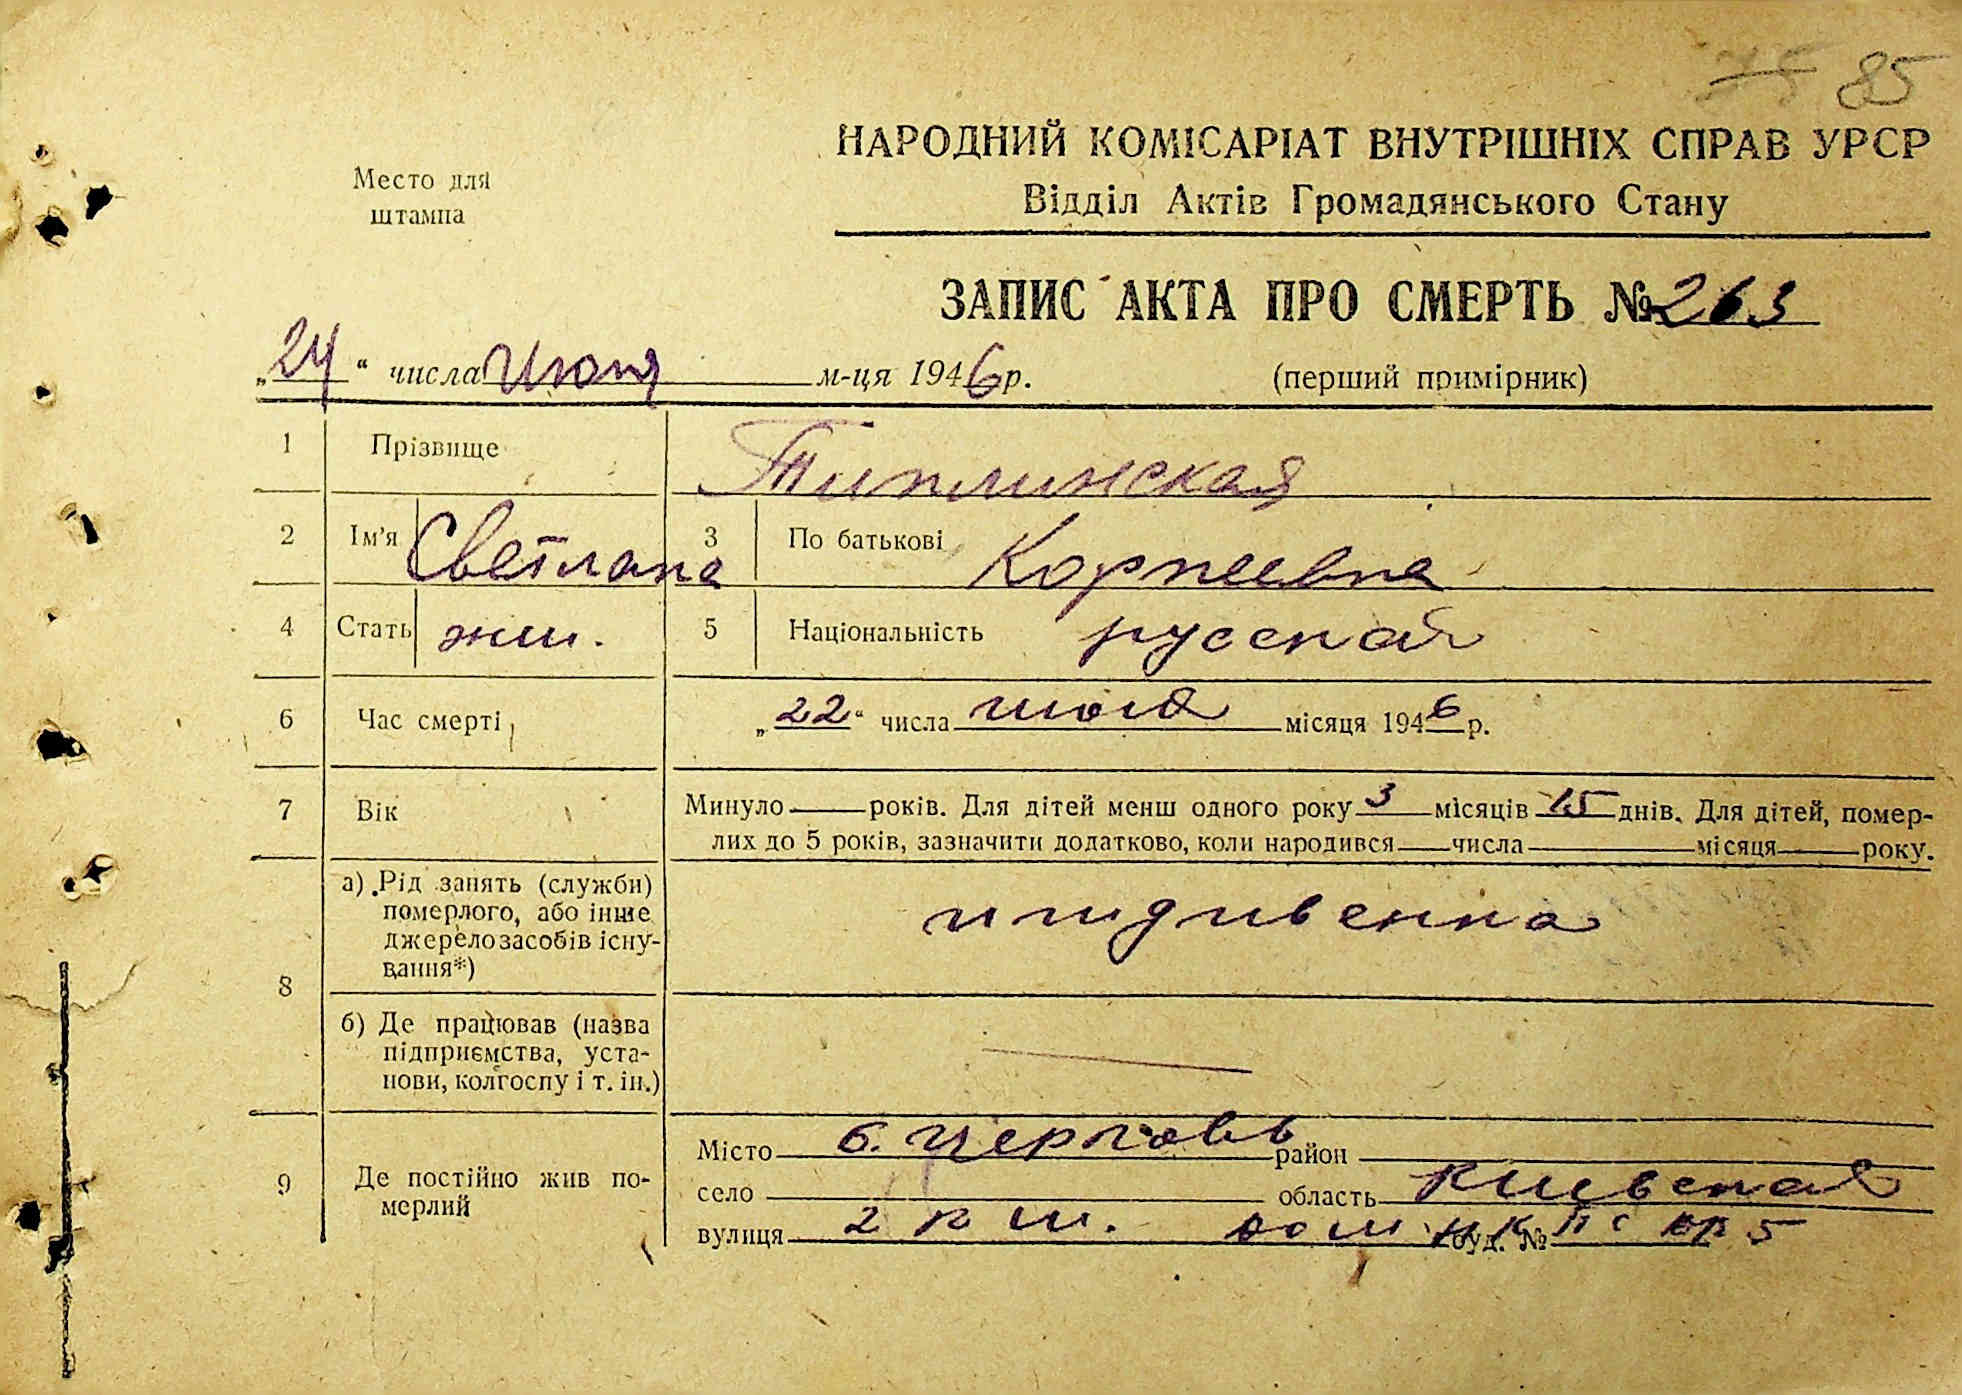 85
НАРОДНИЙ КОМІСАРІАТ ВНУТРІШНІХ СПРАВ УРСР
Место для
штампа
Відділ Актів Громадянського Стану
ЗАПИС АКТА ПРО СМЕРТЬ № 263
„24“ числа Июля м-ця 1946 р. (перший примірник)
1 Прізвище Типлинская
2 Ім'я Светлана 3 По батькові Корнеевна
4 Стать жен. 5 Національність русская
6 Час смерті „22“ числа июля місяця 1946 р.
7 Вік Минуло — років. Для дітей менш одного року 3 місяців 15 днів. Для дітей, помер-
лих до 5 років, зазначити додатково, коли народився числа місяця року.
8 а) Рід занять (служби)
померлого, або інше
джерело засобів існу-
вання*)
иждивенка
б) Де працював (назва
підприємства, уста-
нови, колгоспу і т. ін.)
9 Де постійно жив по-
мерлий
Місто Б. Церковь район
село область Киевская
вулиця 2 дом буд. № кв 5